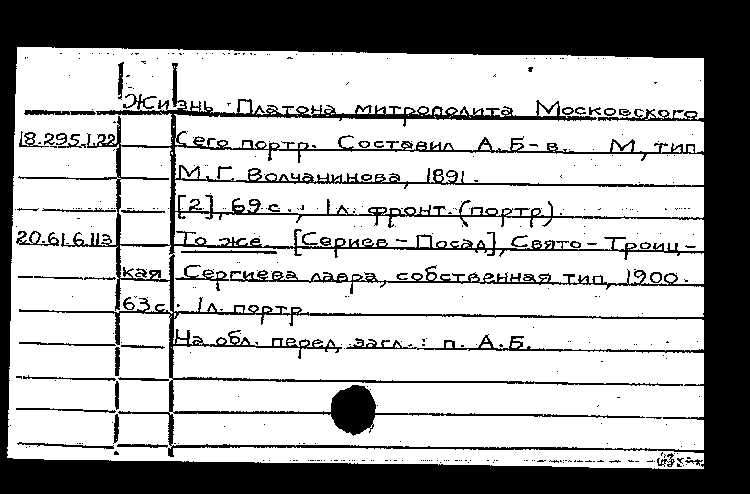 Жизнь Платона, митрополита Московского.
18.295.1.22 С его портр. Составил А. Б-в. М, тип.
М. Г. Волчанинова, 1891.
[2], 69 с.; 1 л. фронт. (портр).
20.61.6.113 То же. [Сергиев-Посад], Свято-Троиц-
кая Сергиева лавра, собственная тип, 1900.
63 с.; 1 л. портр
На обл. перед загл.: п. А. Б.